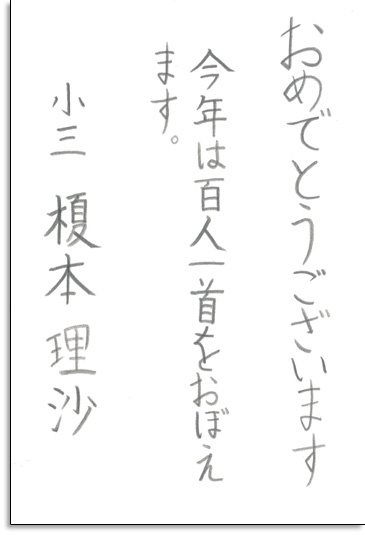 おめでとうございます
今年は百人一首をおぼえ
ます。
小三 榎本理沙